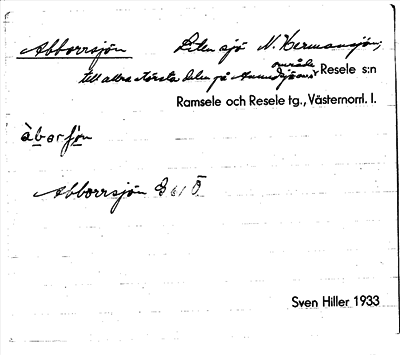 Abborrsjön Liten sjö N. Hermansjön,
område
till allra största delen på Resele s:n
Ramsele och Resele tg., Västernorrl. l.
Abborrsjön Ö
Sven Hiller 1933